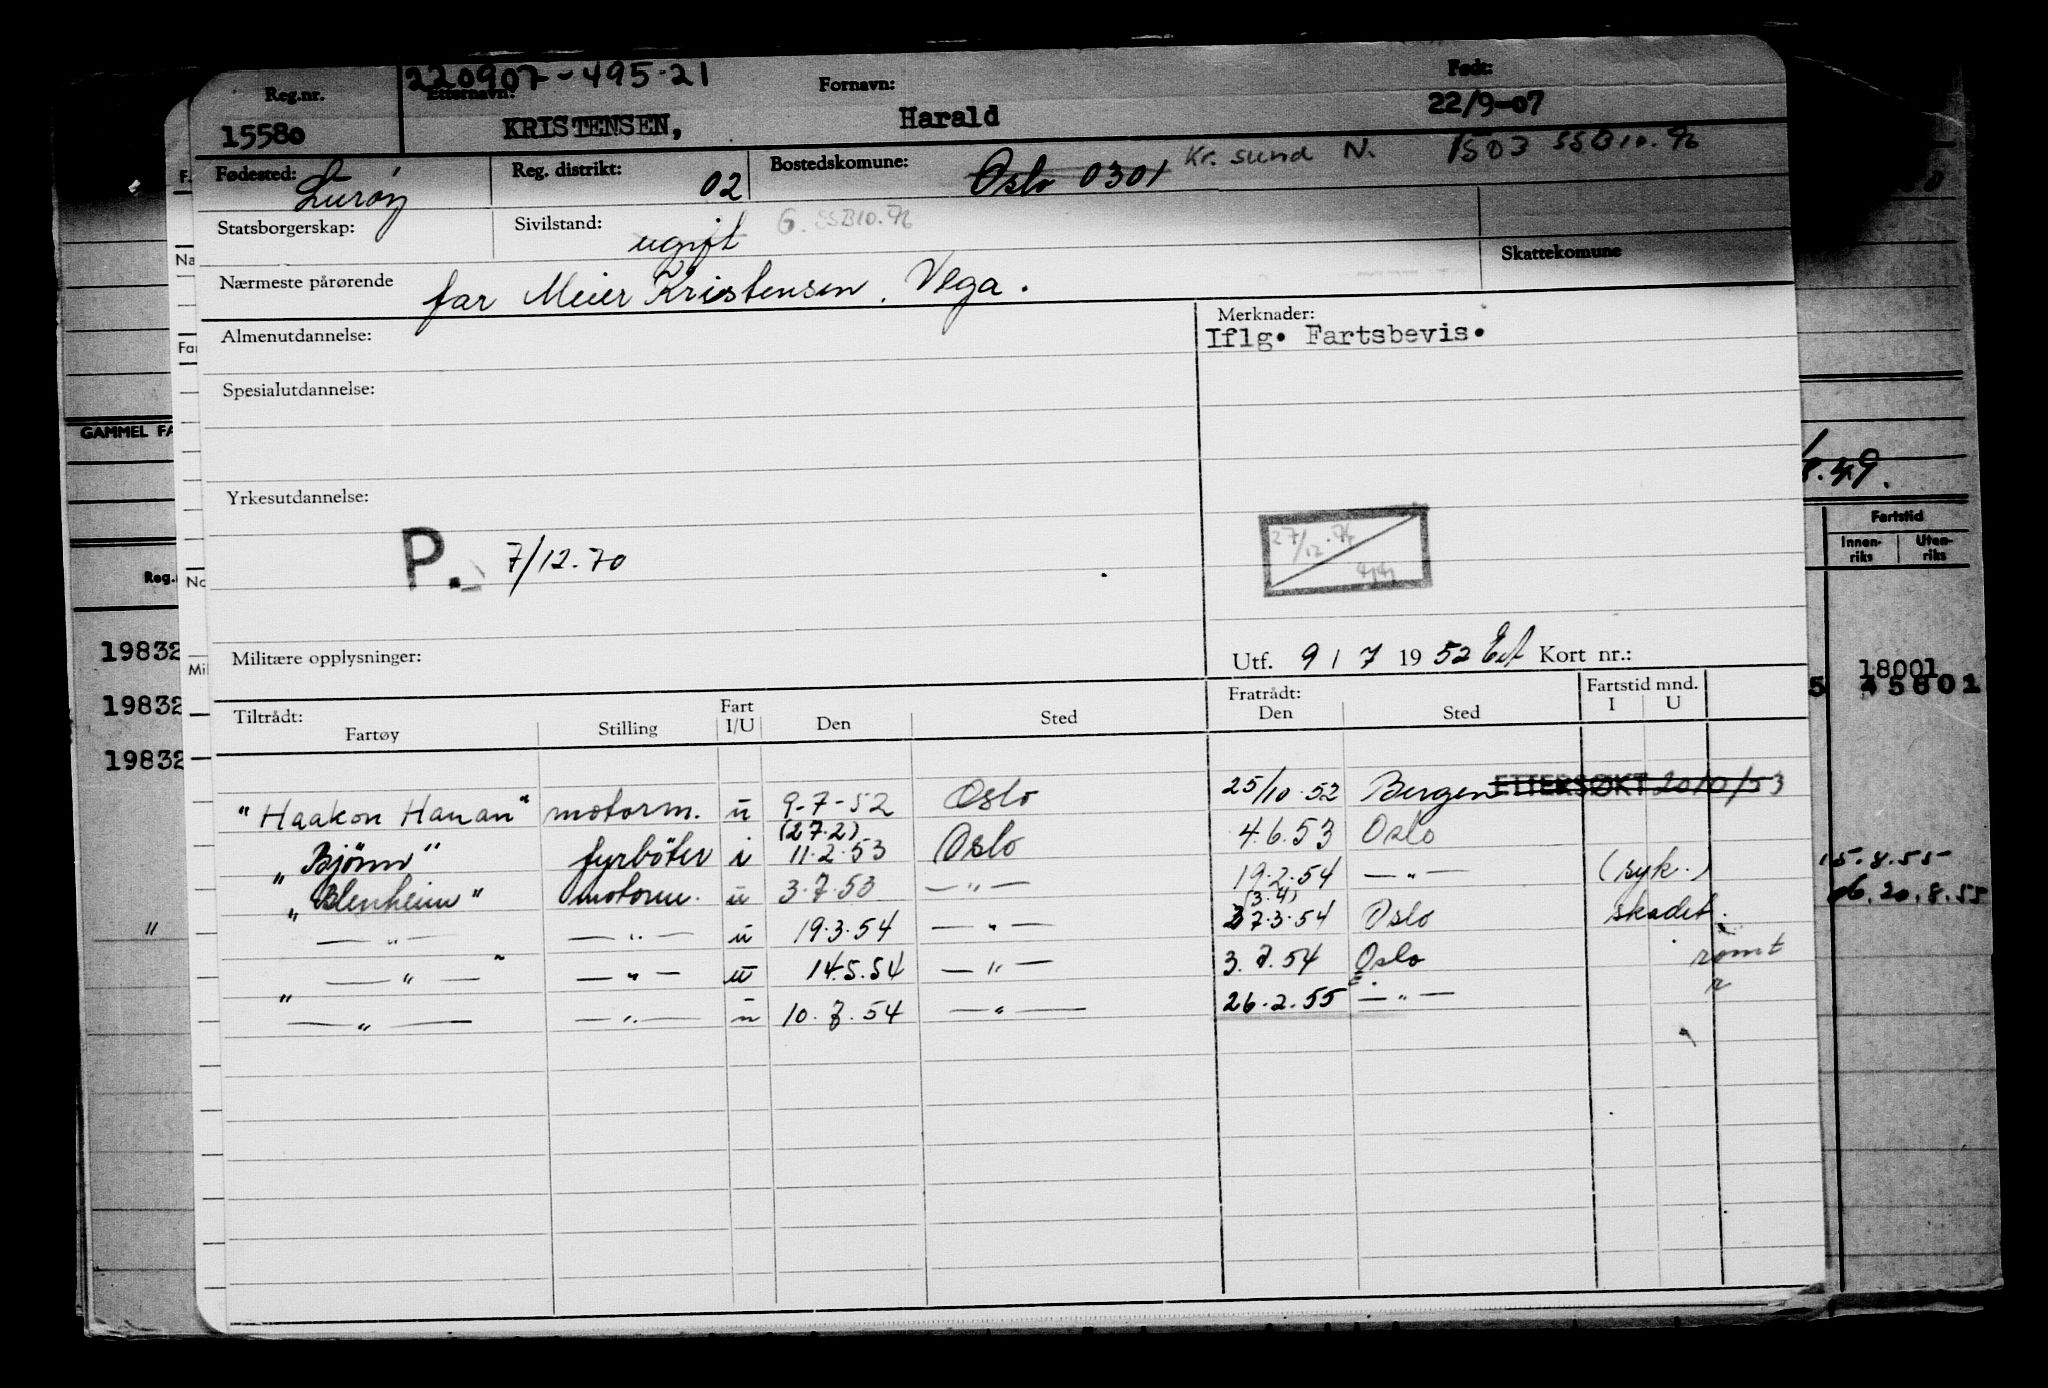 220907-495.21
Reg.nr. Etternavn: Fornavn: Født:
15580 KRISTENSEN, Harald 22/9-07
Fødested: Lurøy Reg. distrikt: 02 Bostedskomune: Oslo 0301 Kr. sund N. 1503 SSB10.76
Statsborgerskap: Sivilstand: ugift G. SSB10.76
Skattekomune
Nærmeste pårørende far Meier Kristensen, Vega.
Almenutdannelse: Merknader:
Iflg. Fartsbevis.
Spesialutdannelse:
Yrkesutdannelse:
P. 7/12.70
27/12.76
Militære opplysninger: Utf. 9 / 7 19 52 Kort nr.:
Tiltrådt: Fartøy Stilling Fart I/U Den Sted Fratrådt: Den Sted Fartstid mnd. I U
"Haakon Hauan" motorm. u 9-7-52 Oslo 25/10.52 Bergen ETTERSØKT 20/0/53
"Bjönn" fyrböter i (27.2) 11.2.53 Oslo 4.6.53 Oslo
"Blenheim" motorm. u 3.7.53 —"— 19.2.54 —"— (syk.)
—"— —"— u 19.3.54 —"— (3.4) 27.3.54 Oslo skadet.
"—"—" —"— u 14.5.54 —"— 3.7.54 Oslo römt
—"— —"— u 10.8.54 —"— 26.2.55 —"— "
F.
Na
Far
GAMMEL FA
Reg.
No
Mil
19832
19832
19832
"
8.49.
Fartstid
Innen-riks Uten-riks
18001
5 45801
15.8.55
20.8.55